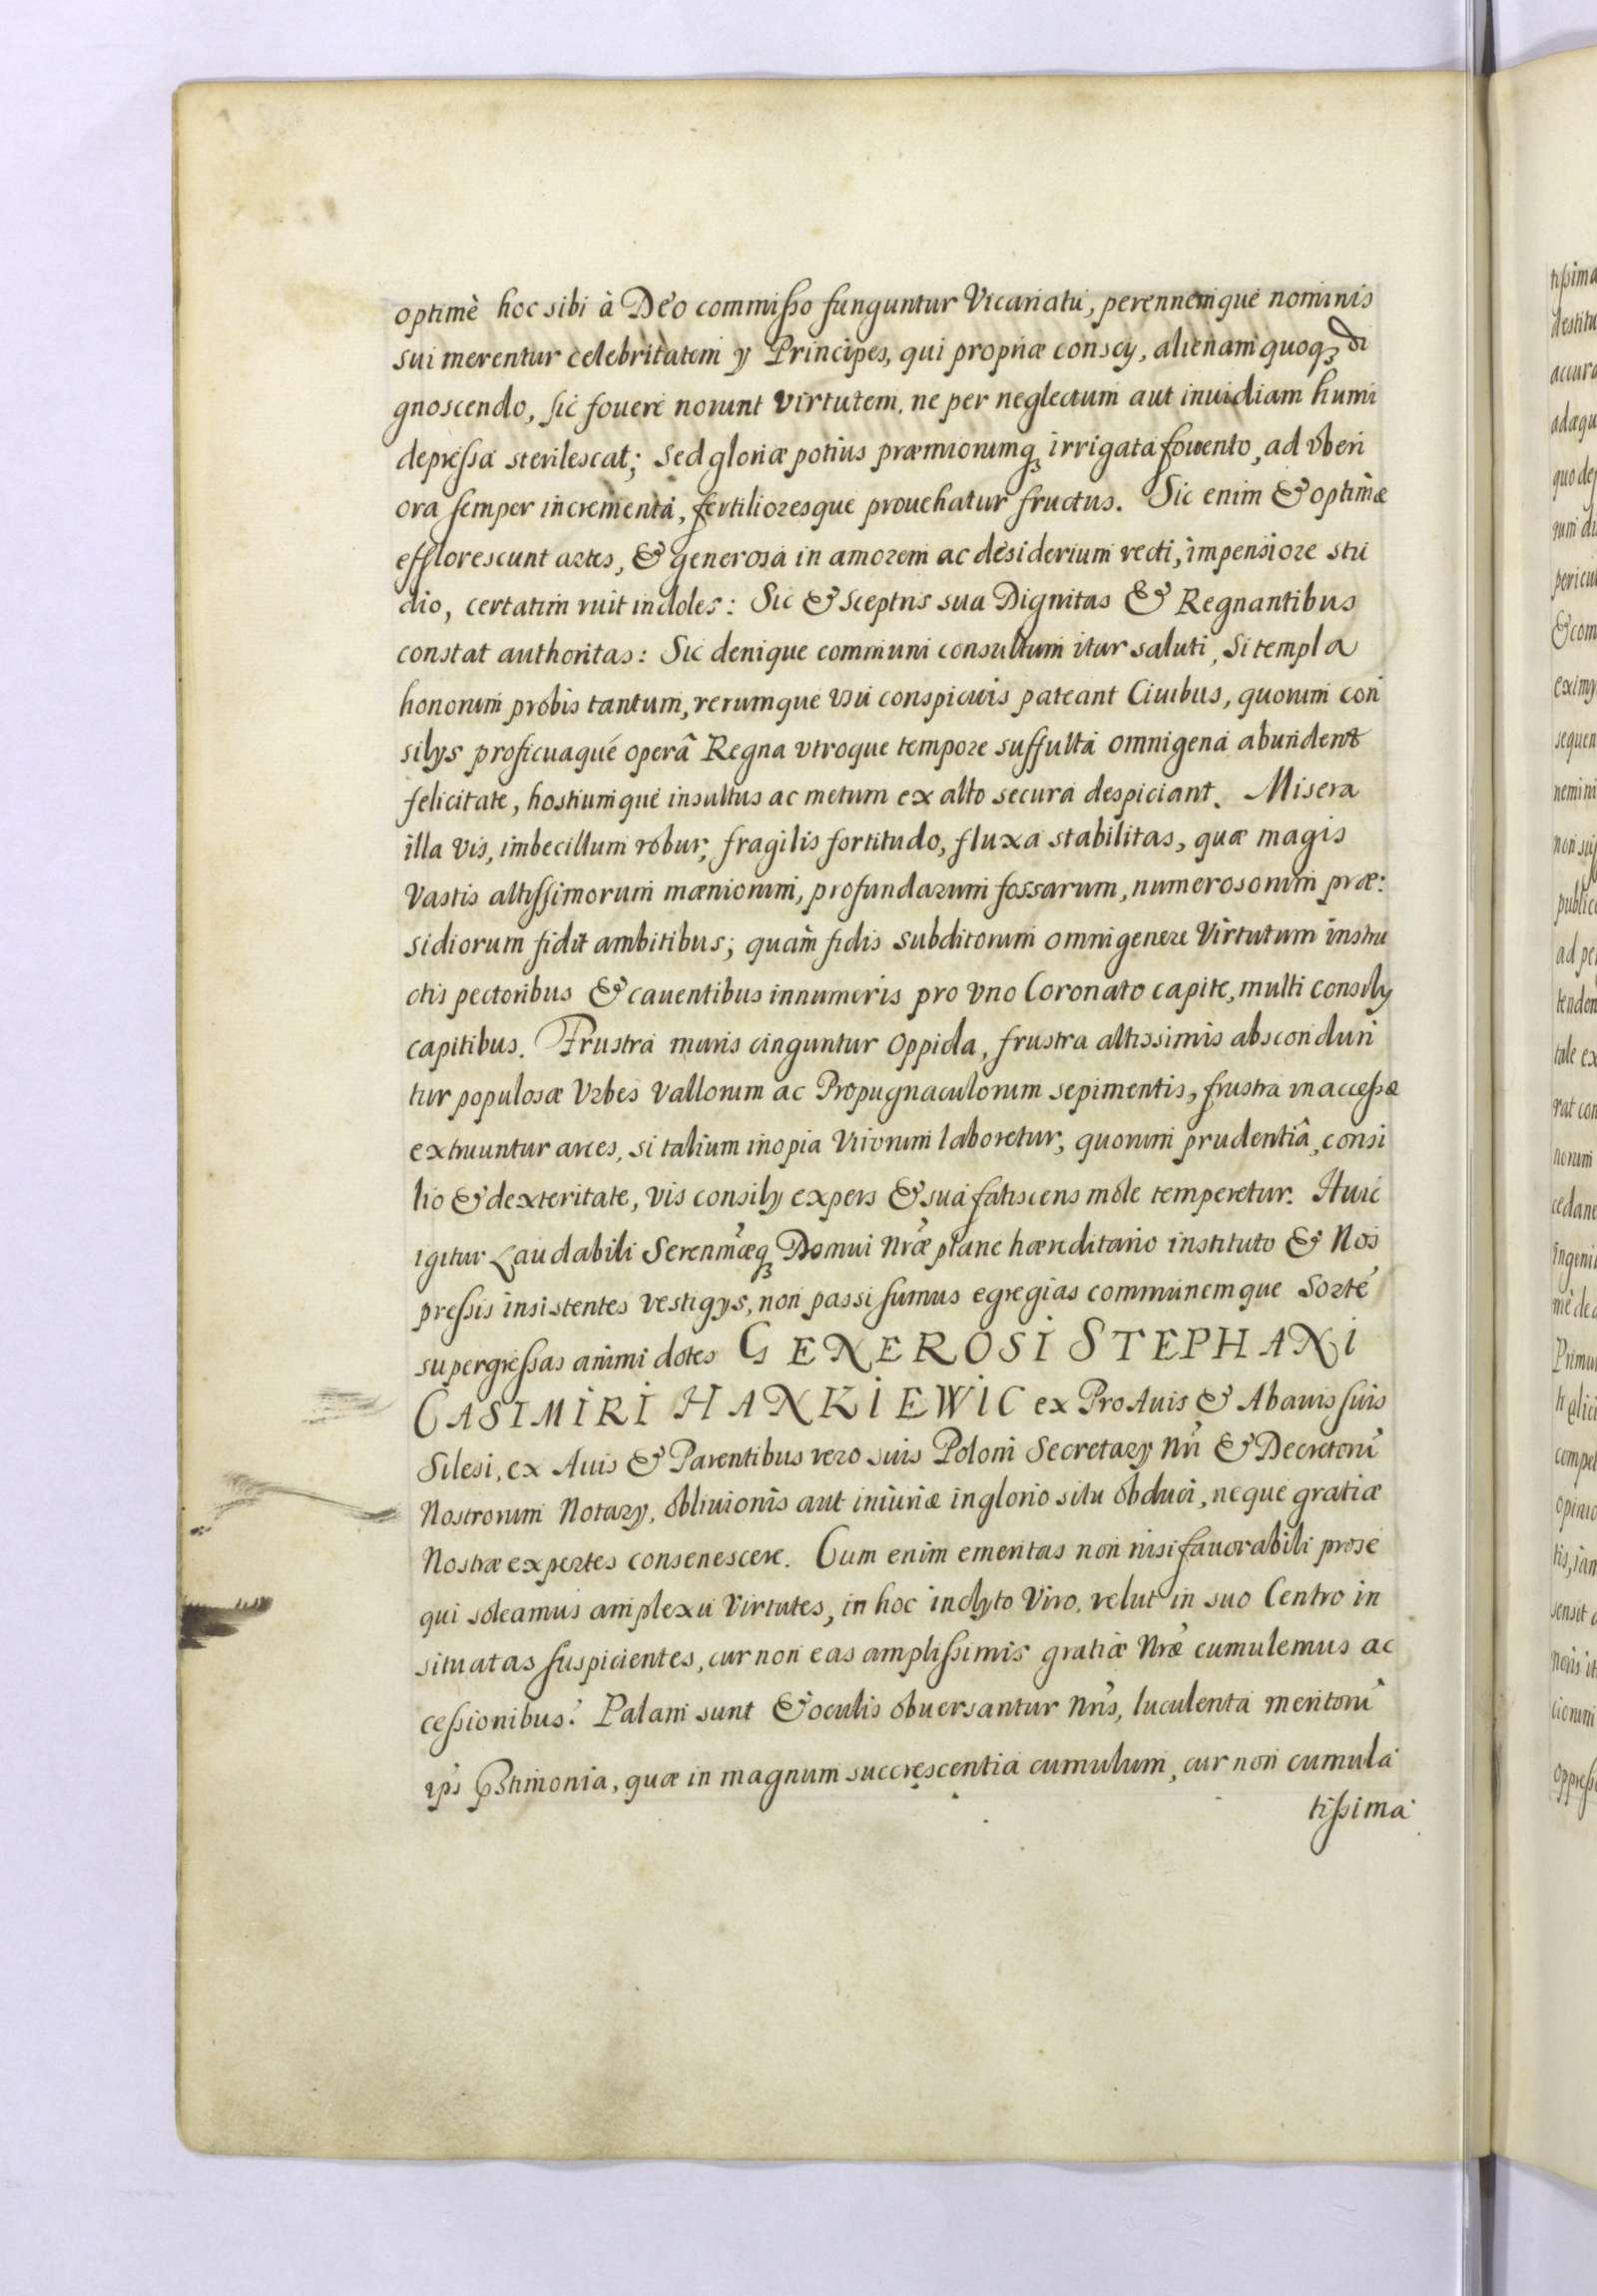 optimè hoc sibi à Deo commisso funguntur Vicariatu, perennemque nominis
sui merentur celebritatem ÿ Principes, qui propriæ conscÿ, alienam quoqꝫ di
gnoscendo, sic fouere norunt virtutem, ne per neglectum aut inuidiam humi
depressa sterilescat; sed gloriæ potius præmiorumqꝫ irrigata fomento, ad vberi
ora semper incrementa, fertilioresque prouehatur fructus. Sic enim & optimæ
efflorescunt artes, & generosa in amorem ac desiderium recti, impensiore stu
dio, certatim ruit indoles: Sic & Sceptris sua Dignitas & Regnantibus
constat authoritas: Sic denique communi consultum itur saluti, Si templa
honorum probis tantum, rerumque vsu conspicuis pateant Ciuibus, quorum con
silÿs proficuaque operâ Regna vtroque tempore suffulta omnigena abundent
felicitate, hostiumque insultus ac metum ex alto secura despiciant. Misera
illa vis, imbecillum robur, fragilis fortitudo, fluxa stabilitas, quæ magis
vastis altissimorum mæniorum, profundarum fossarum, numerosorum præ:
sidiorum fidit ambitibus; quàm fidis subditorum omnigenere Virtutum instru
ctis pectoribus & cauentibus innumeris pro vno Coronato capite, multi consilÿ
capitibus. Frustra muris cinguntur Oppida, frustra altissimis abscondun
tur populosæ Vrbes vallorum ac Propugnaculorum sepimentis, frustra inaccessæ
extruuntur arces, si talium inopia Virorum laboretur, quorum prudentiâ, consi
lio & dexteritate, vis consilÿ expers & sua fatiscens mole temperetur. Huic
igitur Laudabili Serenmæqꝫ Domui Nræ plane hæreditario instituto & Nos
pressis insistentes vestigÿs, non passi sumus egregias communemque Sorte
supergressas animi dotes GENEROSI STEPHANI
CASIMIRI HANKIEWIC ex ProAuis & Abauis suis
Silesi, ex Auis & Parentibus vero suis Poloni Secretarÿ Nri & Decretorũ
Nostrorum Notarÿ, obliuionis aut iniuriæ inglorio situ obduci, neque gratiæ
Nostræ expertes consenescere. Cum enim emeritas non nisi fauorabili prose
qui soleamus amplexu Virtutes, in hoc inclyto Viro, velut in suo Centro in
situatas suspicientes, cur non eas amplissimis gratiæ Nræ cumulemus ac
cessionibus? Palam sunt & oculis obuersantur Nris, luculenta meritorũ
ips testimonia, quæ in magnum succrescentia cumulum, cur non cumula
tissima